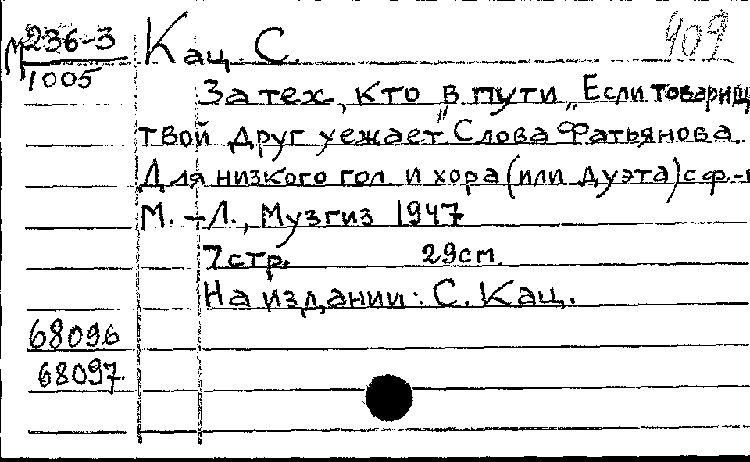 М 236-3 Кац С. 909
1005
За тех, кто в пути „Если товарищ
твой друг уежает" Слова Фатьянова.
Для низкого гол. и хора (или дуэта) с ф.-
М. -Л., Музгиз 1947
7 стр. 29 см.
На издании: С. Кац.
68096
68097